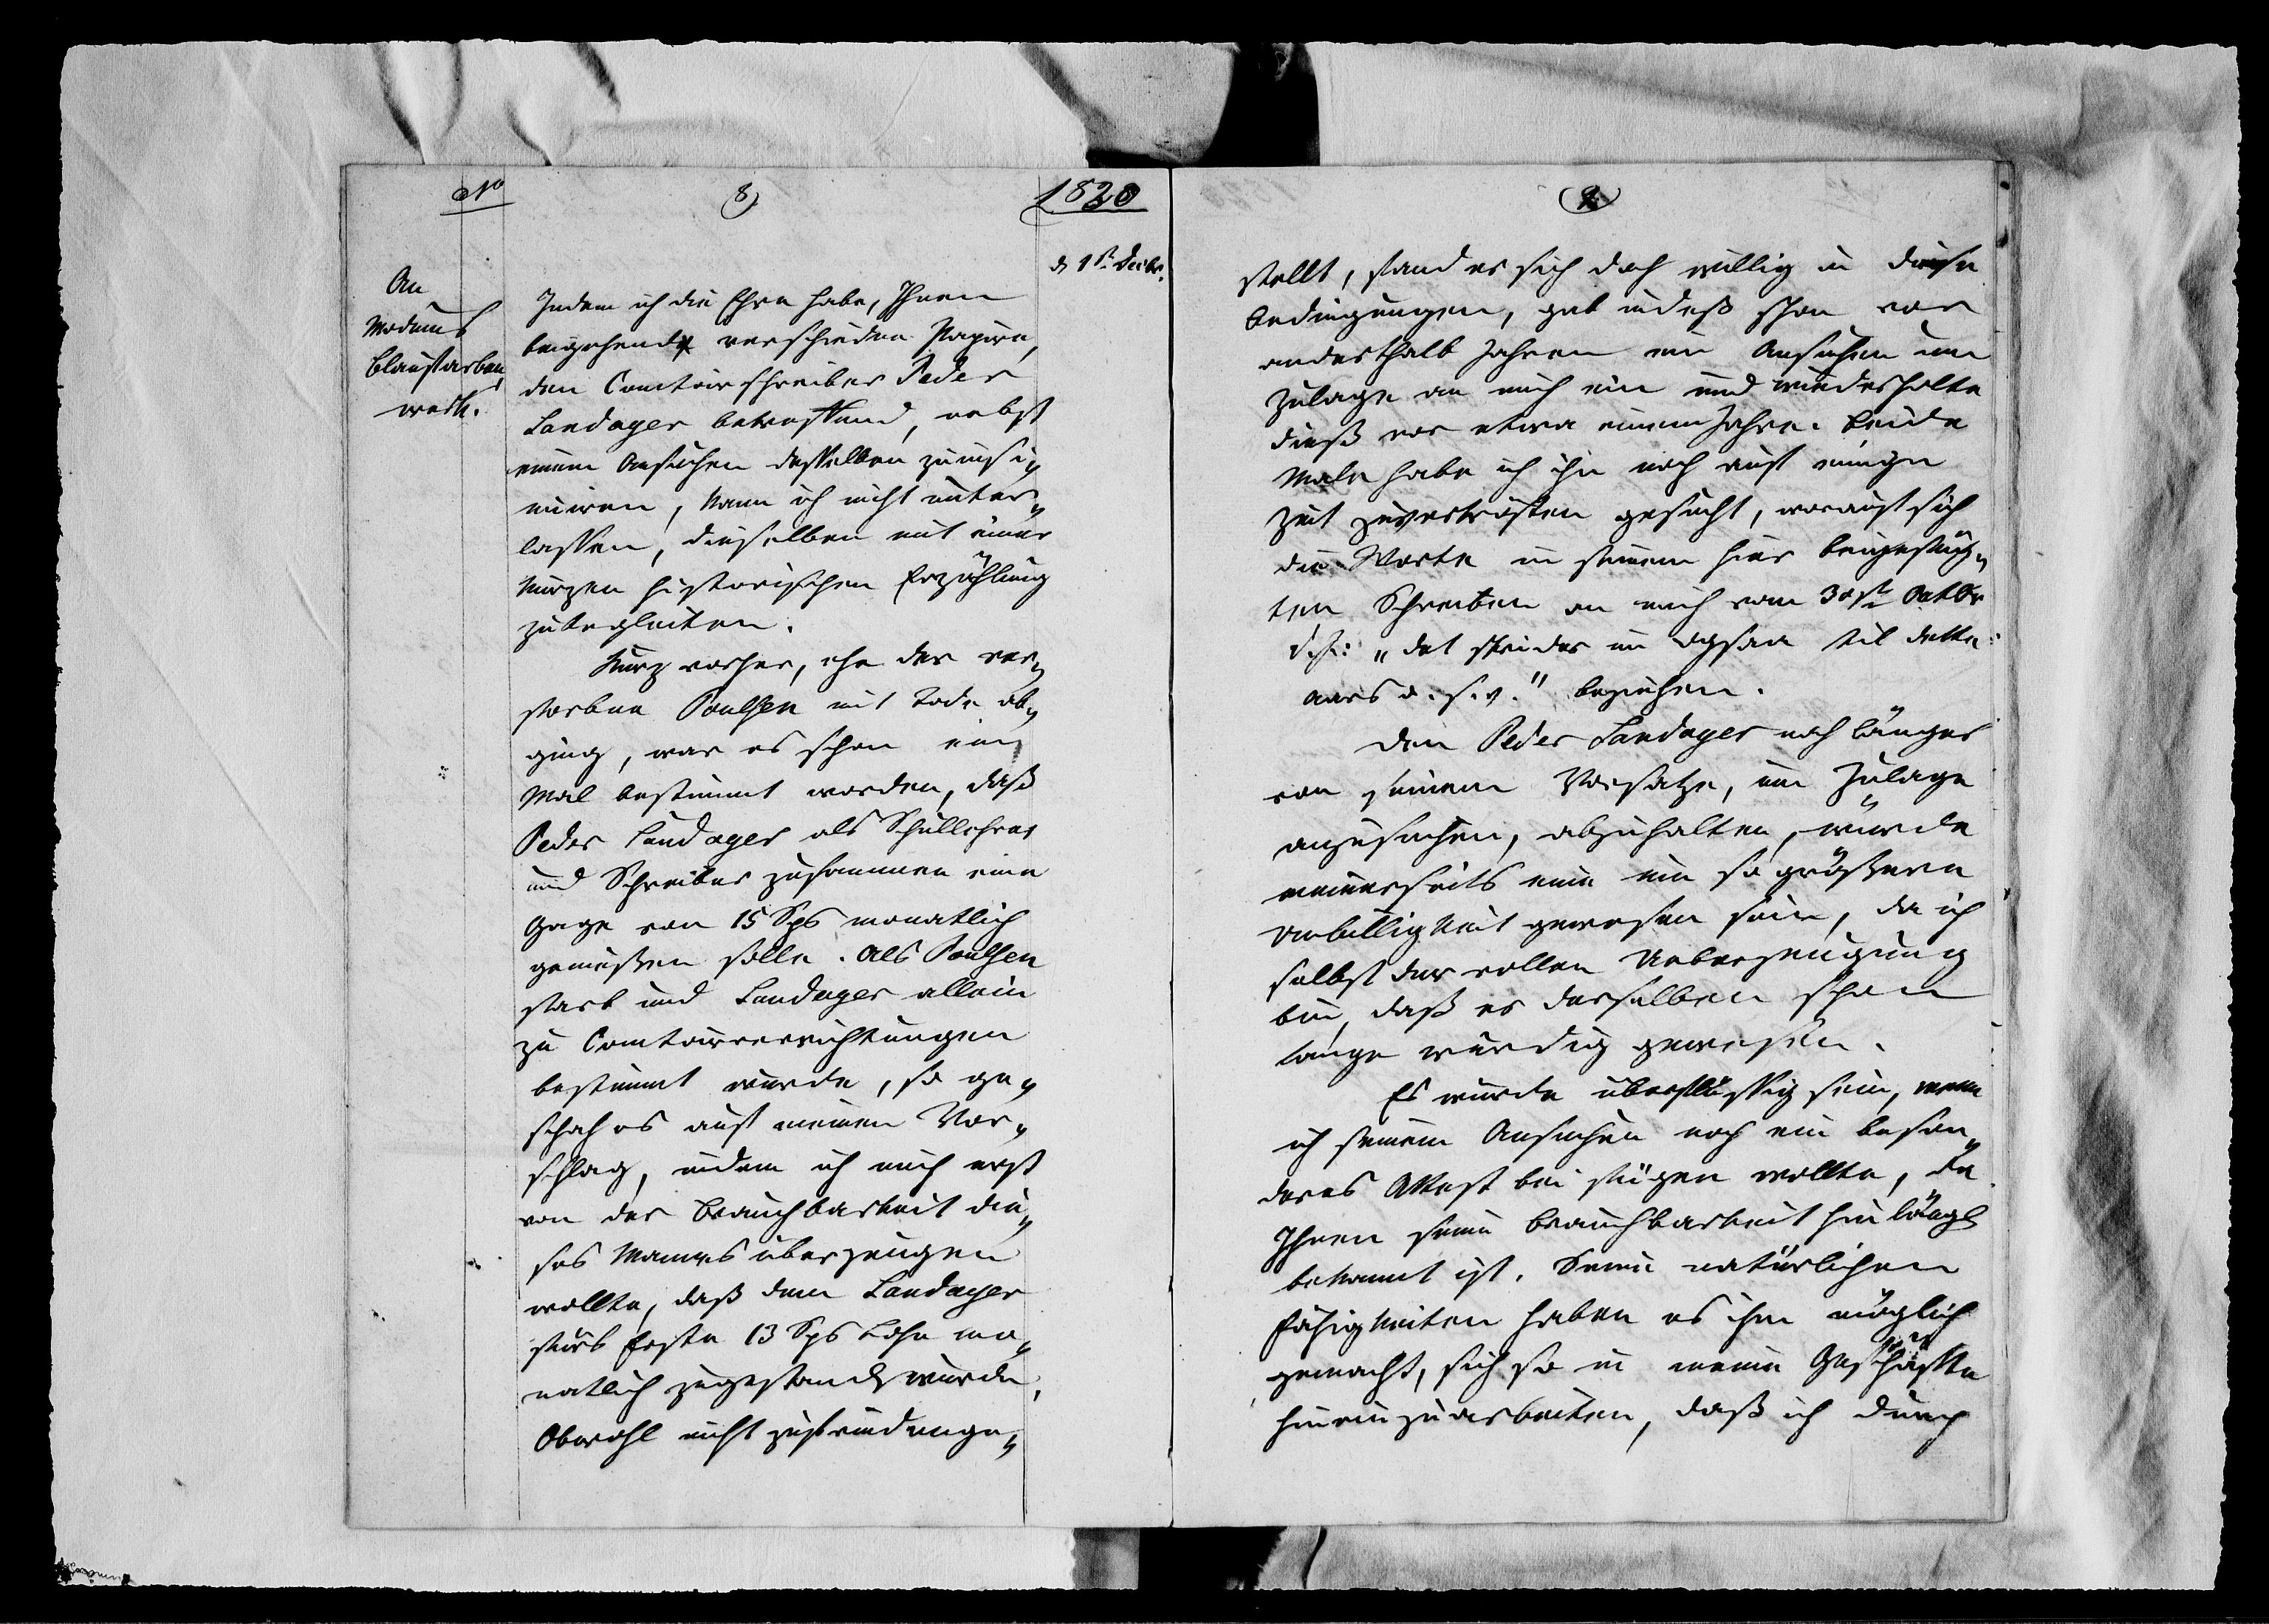 No
8
1820
d 1st Decbr.
An
Modums
Blaufarben
werk.
Indem ich die Ehre habe, Ihnen
beigehend verschiedne Papiere,
den Comtoirschreiber Peder
Landager betreffend, nebst
einem Ansuchen desselben zu insi„
nuiren, kann ich nicht unter„
lassen, dieselben mit einer
kurzen historischen Erzählung
zubegleiten.
Kurz vorher, ehe der ver„
storbne Poulsen mit Tode ab„
ging, war es schon ein
Mal bestimmt worden, daß
Peder Landager als Schullehrer
und Schreiber zusammen eine
Gage von 15 Sps monatlich
genießen solle. Als Poulsen
starb und Landager allein
zu Comtoirverrichtungen
bestimmt wurde, so ge„
schah es auf meinen Vor„
schlag, indem ich mich erst
von der Brauchbarkeit die„
ses Mannes überzeugen
wollte, daß dem Landager
fürs Erste 13 Sps Lohn mo„
natlich zugestand wurde,
Obwohl nicht zufriedenge„
9
stellt, fand er sich doch willig in diese
Bedingungen, gab indeß schon vor
anderthalb Jahren ein Ansuchen um
Zulage an mich ein und wiederholte
dieß vor etwa einem Jahre. Beide
Male habe ich ihn noch auf einige
Zeit zuvertrösten gesucht, worauf sich
die Worte in seinem hier beigefüg„
ten Schreiben an mich vom 30st Octbr
d. J.: „det skrider nu ogsaa til dette
aars o. s. v." beziehen.
Den Peder Landager noch länger
von seinem Vorsatze, um Zulage
anzusuchen, abzuhalten, würde
meinerseits eine um so größere
Unbilligkeit gewesen sein, da ich
selbst der vollen Ueberzeugung
bin, daß er derselben schon
lange würdig gewesen.
Es würde überflüssig sein, wenn
ich seinem Ansuchen noch ein beson„
deres Attest bei fügen wollte, da
Ihnen seine Brauchbarkeit hinlängl
bekannt ist. Seine natürlichen
Fähigkeiten haben es ihm möglich
gemacht, sich so in meine Geschäfte
hineinzuarbeiten, daß ich durch